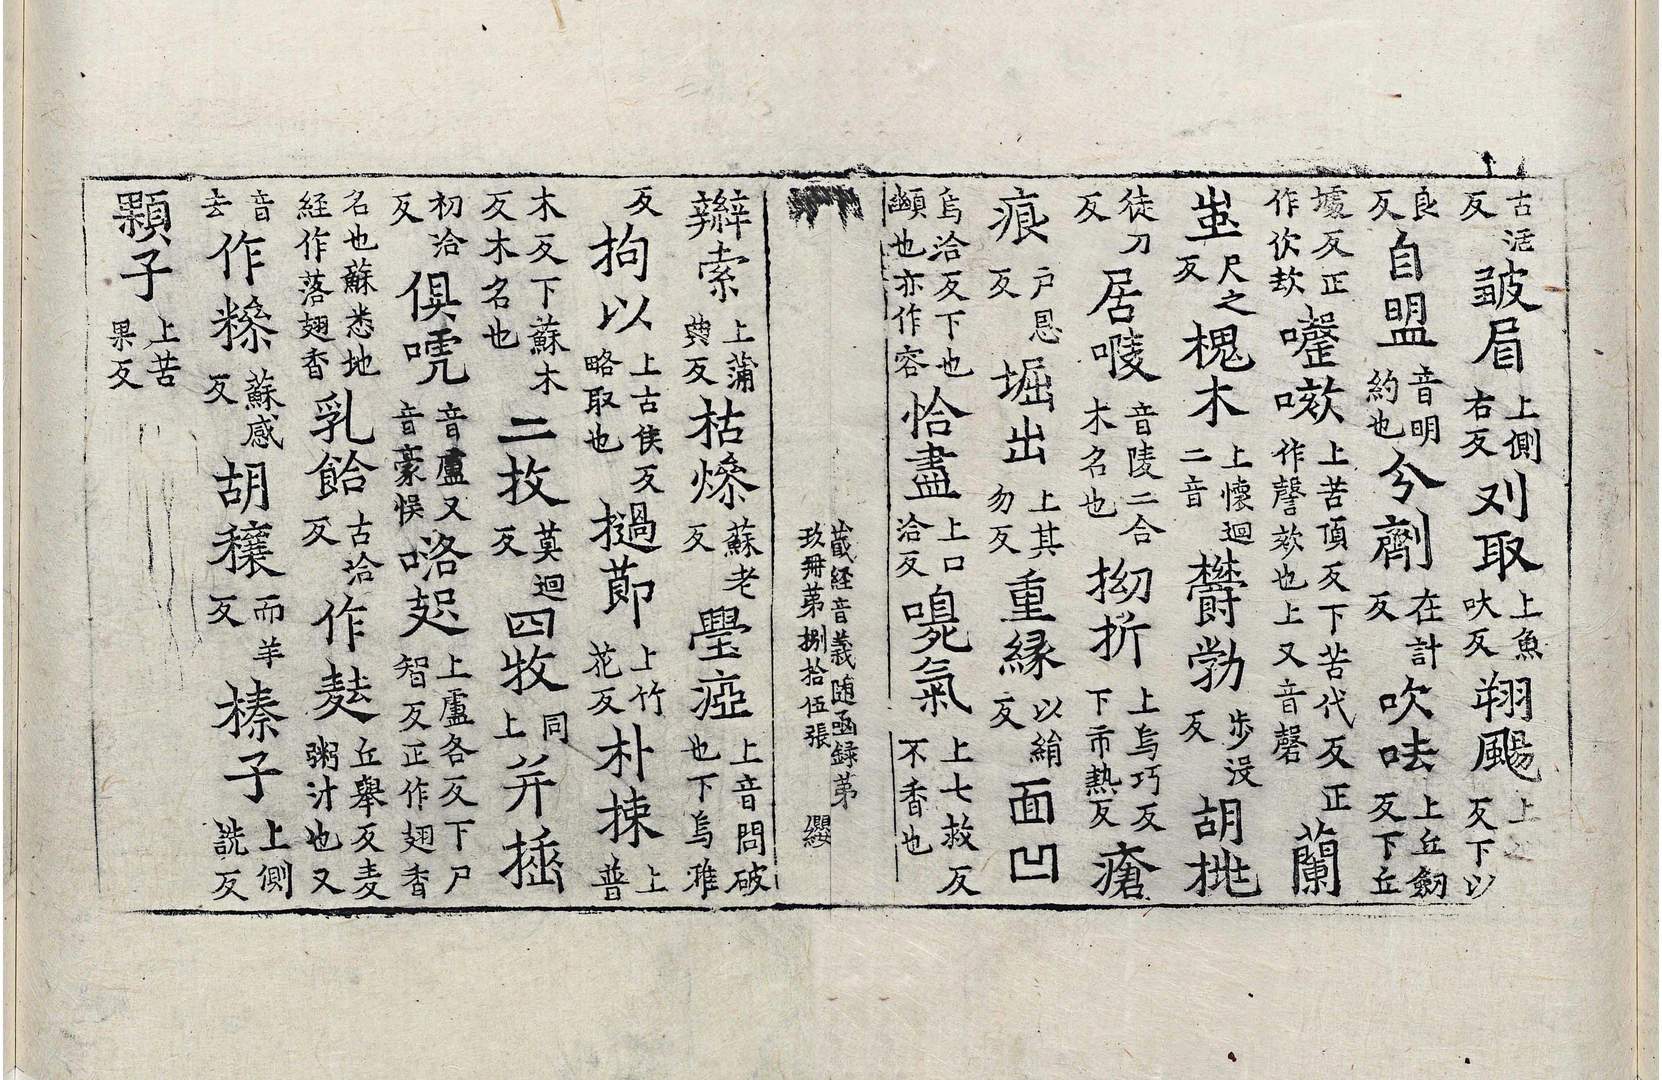 古活反皺眉上側右反刈取上魚吠反翔颺上反下以
良反自盟音明約也兮劑在計反吹呿上丘劒反下丘
墟反正作佽欬嚦嗽上苦頂反下苦代反正作謦欬也上又音磬蘭
蚩尺之反槐木上懷迴二音欝勃步没反胡桃
徒刀反居㖫音陵二合木名也拗折上烏巧反下市熱反瘡
痕户恩反堀出上其勿反重緣以絹反面凹
烏洽反下也䫜也亦作容恰盡上口洽反嘷氣上七救反不香也
藏経音義随函録苐玖冊苐捌拾伍張 纓
辮索上蒲典反枯燥蘇老反璺瘂上音問破也下烏雅
反拘以上古侯反略取也撾節上竹花反朴揀上普
木反下蘇木反木名也二枚莫迴反四牧同上并插
初洽反俱唬音盧又音豪悮咯趐上盧各反下尸智反正作翅香
名也蘇悉地経作落翅香乳餄古洽反作麩丘舉反麦粥汁也又
音去作糝蘇感反胡穰而羊反榛子上側詵反
顆子上苦果反